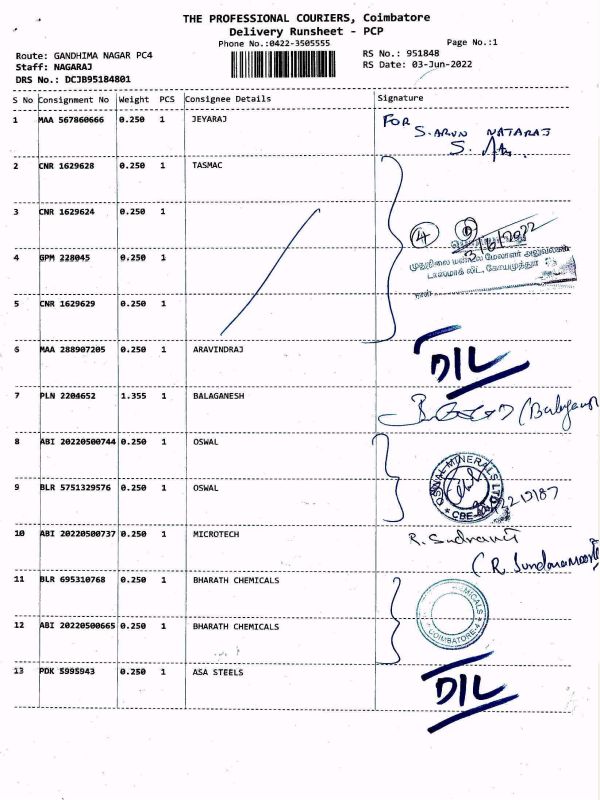 THE PROFESSIONAL COURIERS, Coimbatore
Delivery Runsheet - PCP
Phone No.:0422-3505555
Page No.:1
Route: GANDHIMA NAGAR PC4
RS No.: 951848
Staff: NAGARAJ
RS Date: 03-Jun-2022
DRS No.: DCJB95184801
S No Consignment No Weight PCS Consignee Details Signature
1 MAA 567860666 0.250 1 JEYARAJ FOR
S. ARUN NATARAJ
2 CNR 1629628 0.250 1 TASMAC
3 CNR 1629624 0.250 1
4
3/6/2022
முதுநிலை மண்டல மேலாளர் அலுவலகம்
4 GPM 228045 0.250 1
டாஸ்மாக் லிட், கோயமுத்தூர்
நாள்
5 CNR 1629629 0.250 1
6 MAA 288907205 0.250 1 ARAVINDRAJ D/L
7 PLN 2204652 1.355 1 BALAGANESH
8 ABI 20220500744 0.250 1 OSWAL
OSWAL MINERALS LTD
* CBE
9 BLR 5751329576 0.250 1 OSWAL
10 ABI 20220500737 0.250 1 MICROTECH
11 BLR 695310768 0.250 1 BHARATH CHEMICALS
12 ABI 20220500665 0.250 1 BHARATH CHEMICALS
COIMBATORE-4
13 PDK 5995943 0.250 1 ASA STEELS D/L